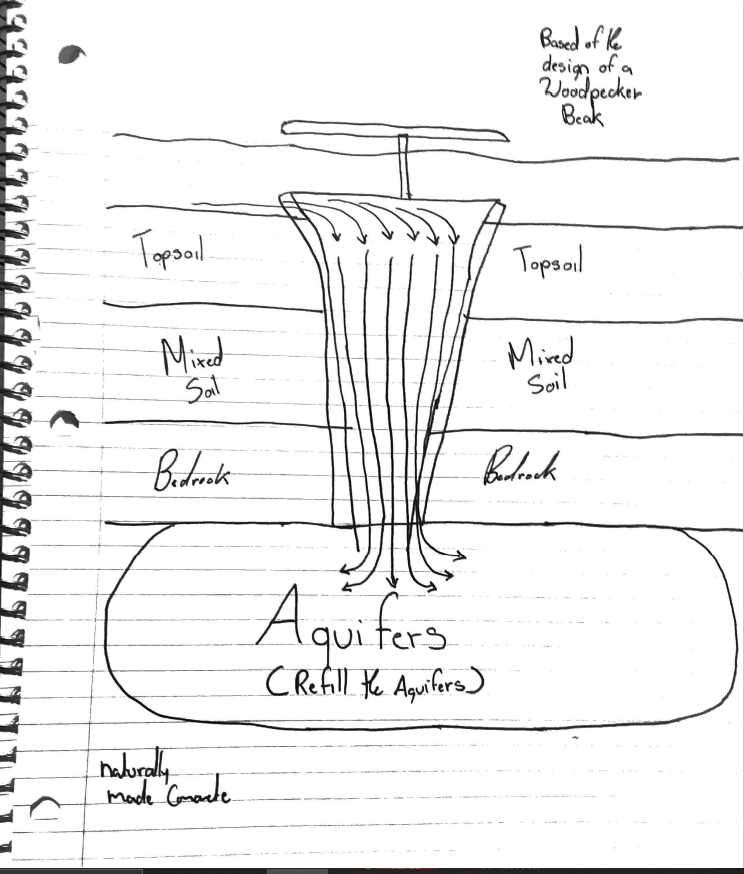 Based of the
design of a
Woodpecker
Beak
Topsoil
Topsoil
Mixed
Soil
Mixed
Soil
Bedrock
Bedrock
Aquifers
(Refill the Aquifers)
naturally
made Concrete